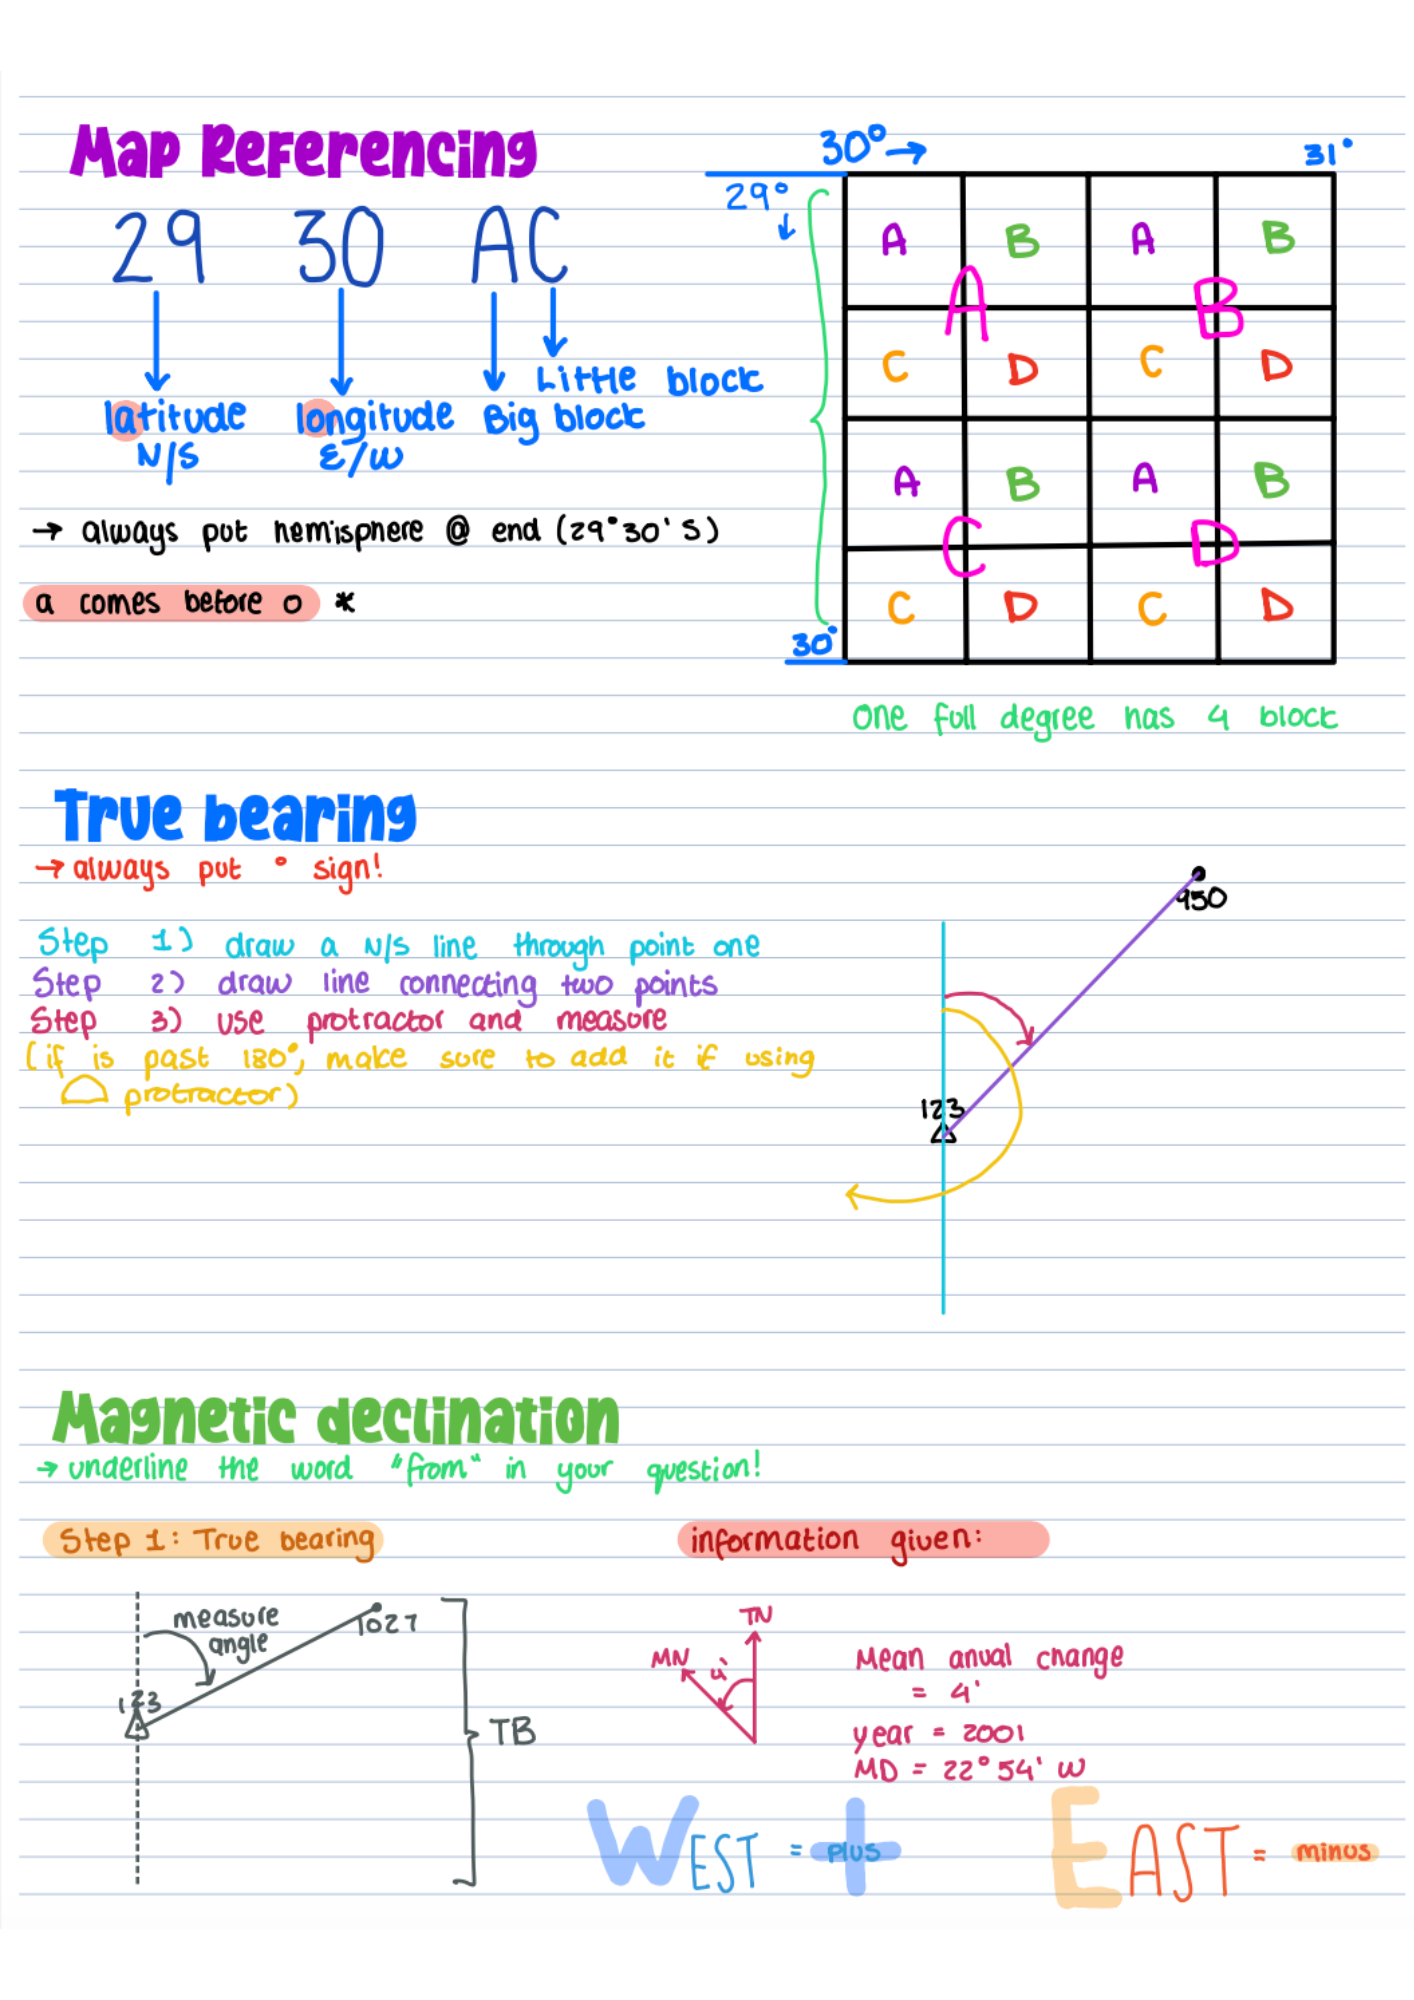 Map Referencing
29 30 AC
latitude
N/S
longitude
E/W
Big block
Little block
→ always put hemisphere @ end (29°30' S)
a comes before o *
30° →
31°
29°
↓
A B A B
A B
C D C D
A B A B
C D
C D C D
30°
One full degree has 4 block
True bearing
→ always put ° sign!
Step 1) draw a N/S line through point one
Step 2) draw line connecting two points
Step 3) use protractor and measure
(if is past 180°, make sure to add it if using
protractor)
950
123
Magnetic declination
→ underline the word "from" in your question!
Step 1: True bearing
measure
angle
1027
123
TB
information given:
TN
MN
4'
Mean anual change
= 4'
year = 2001
MD = 22°54' W
WEST = plus
EAST = minus